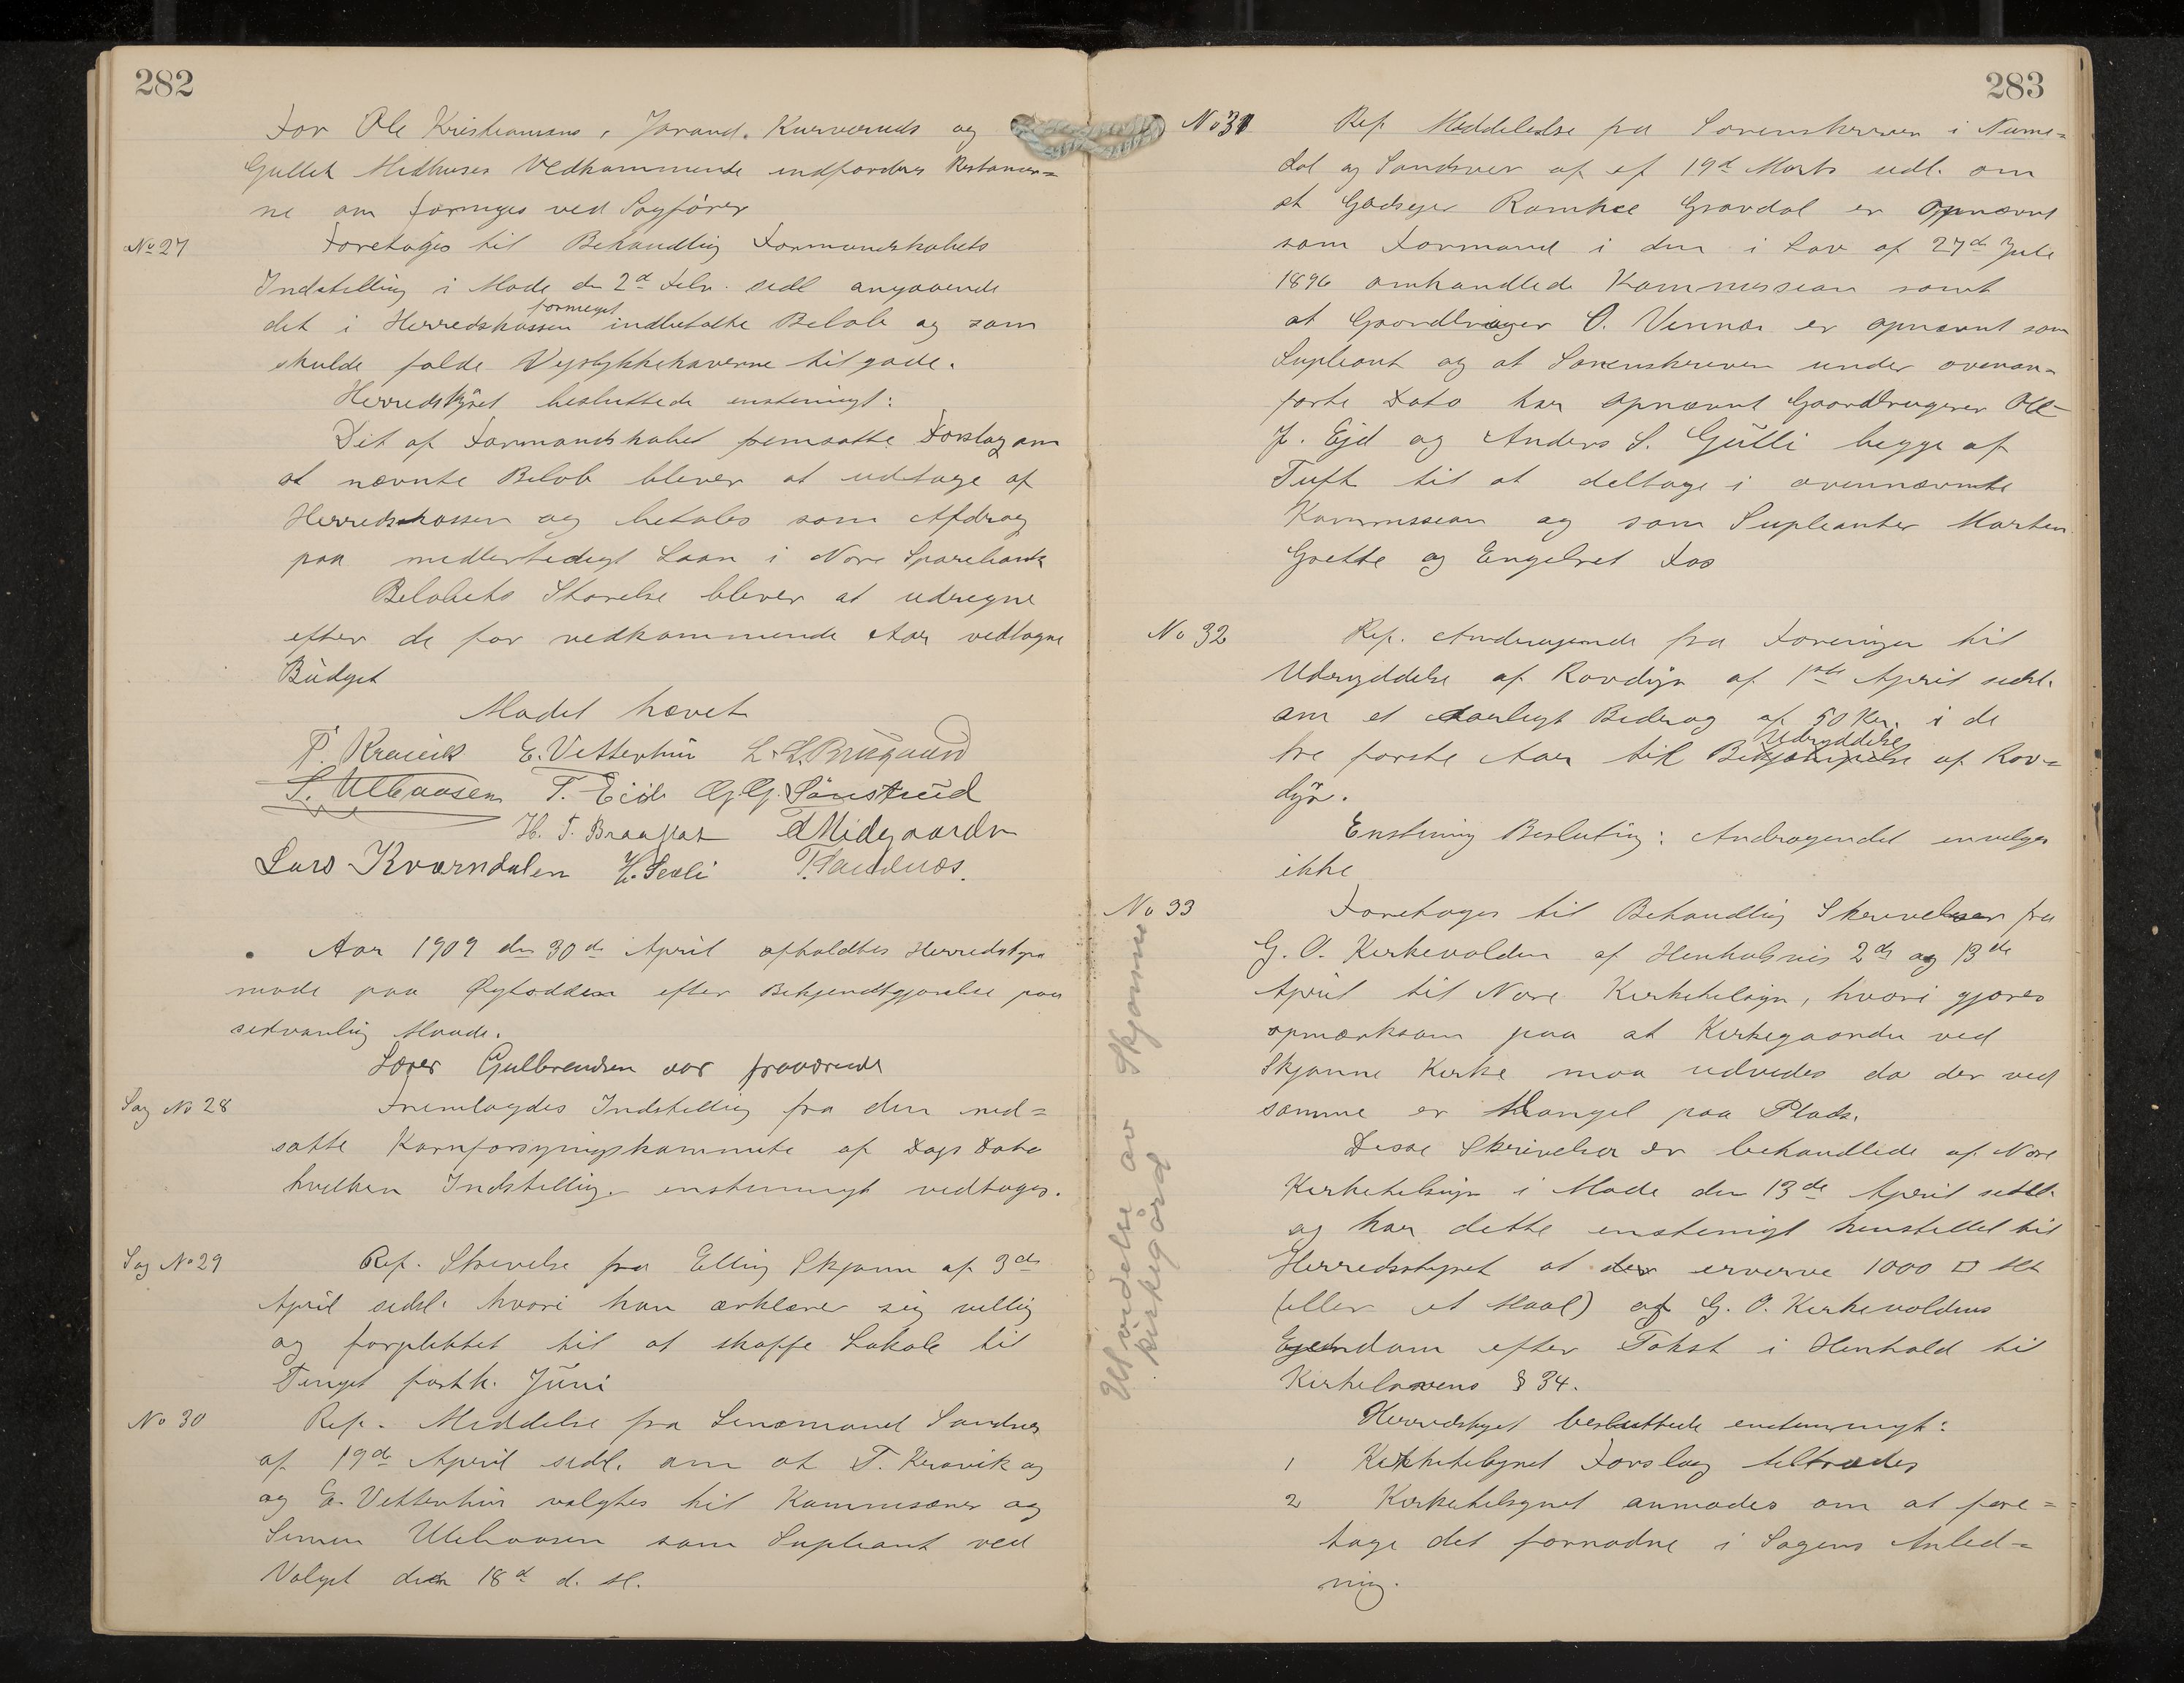 282
For Ole Kristiansens, Jorand. Kurveruds og
Gullek Medhuses Vedkommende indfordres Restancer=
ne om fornøges ved Sagfører
No 27
Foretages til Behandling Formandskabets
Indstilling i Møde den 2d Febr. sidl angaaende
formeget
det i Herredskassen indbetalte Beløb og som
skulde falde Vejstykkehaverne tilgode.
Herredstyret besluttede enstemigt:
Det af Formandskabet fremsatte Forslag om
at nævnte Beløb bliver at udtage af
Herredskassen og betales som Afdrag
paa midlertidigt Laan i Nore Sparebank
Beløbets Størrelse bliver at udregne
efter de for vedkommende Aar vedtagne
Budget
Mødet hævet
T. Kravik E. Vetterhus L. L. Brugaard
S. Ulehaasen T. Eide G.G. Sønsterud
H. T. Braaflat A Midgaarden
Lars Kværndalen H. Seeli T. Sandnæs.
Aar 1909 den 30de April afholdtes Herredstyre
møde paa Øytodden efter Bekjendtgjørelse paa
sedvanlig Maade.
Lærer Gulbrandsen var fraværende
Sag No 28
Fremlagdes Indstilling fra den ned=
satte Kornforsyningskommite af Dags Dato
hvilken Indstilling enstemmigt vedtoges.
Sag No 29
Ref. Skrivelse fra Elling Skjønne af 3de
April sidstl. hvori han erklærer sig villig
og forpliktet til at skaffe Lokale til
Tinget førstk. Juni
No 30
Ref. Meddelse fra Lensmand Sandnes
af 19de April sidl. om at T. Kravik og
og E. Vetterhus valgtes til Kommisærer og
Simen Ulehaasen som Supleant ved
Valget den 18d d. M.
283
No 31
Ref Meddelelse fra Sorenskriveren i Nume=
dal og Sandsver af af 19d Marts sidl. om
at Godseger Ramhee Gravdal er Opnævnt
som Formand i den i Lov af 27de Juli
1896 omhandlede Kommission samt
at Gaardbruger O. Vennes er opnævnt som
Supleant og at Sorenskriveren under ovenan=
førte Dato har opnævnt Gaardbrugerer Ole
J. Ejd og Anders S. Gulli begge af
Tuft til at deltage i ovennævnte
Kommission og som Supleanter Marten
Grette og Engebret Fos
No 32
Ref. Andragende fra Foreningen til
Udryddelse af Rovdyr af 1ste April sidstl.
om et aarligt Bidrag af 50 Kr. i de
Udryddelse
tre første Aar til Bekjæmpelse af Rov=
dyr.
Enstemig Beslutning: Andragendet invilges
ikke
No 33
Foretages til Behandling Skrivelser fra
G. O. Kirkevolden af Henholsvis 2de og 13de
April til Nore Kirketilsyn, hvori gjøres
opmærksom paa at Kirkegaarden ved
Skjønne Kirke maa udvides da der ved
samme er Mangel paa Plads.
Disse Skrivelser er behandlede af Nore
Kirketilsyn i Møde den 13de April sidstl.
og har dette enstemigt henstillet til
Herredsstyret at der erverve 1000 □ M
(eller et Maal) af G. O. Kirkevoldens
Ejendom efter Takst i Henhold til
Kirkelovens § 34.
Herredstyret besluttede enstemmigt:
1 Kirketilsynet Forslag tiltrædes
2 Kirketilsynet anmodes om at fore=
tage det fornødne i Sagens Anled=
ning.
Utvidelse av Skjønne
kirkegård